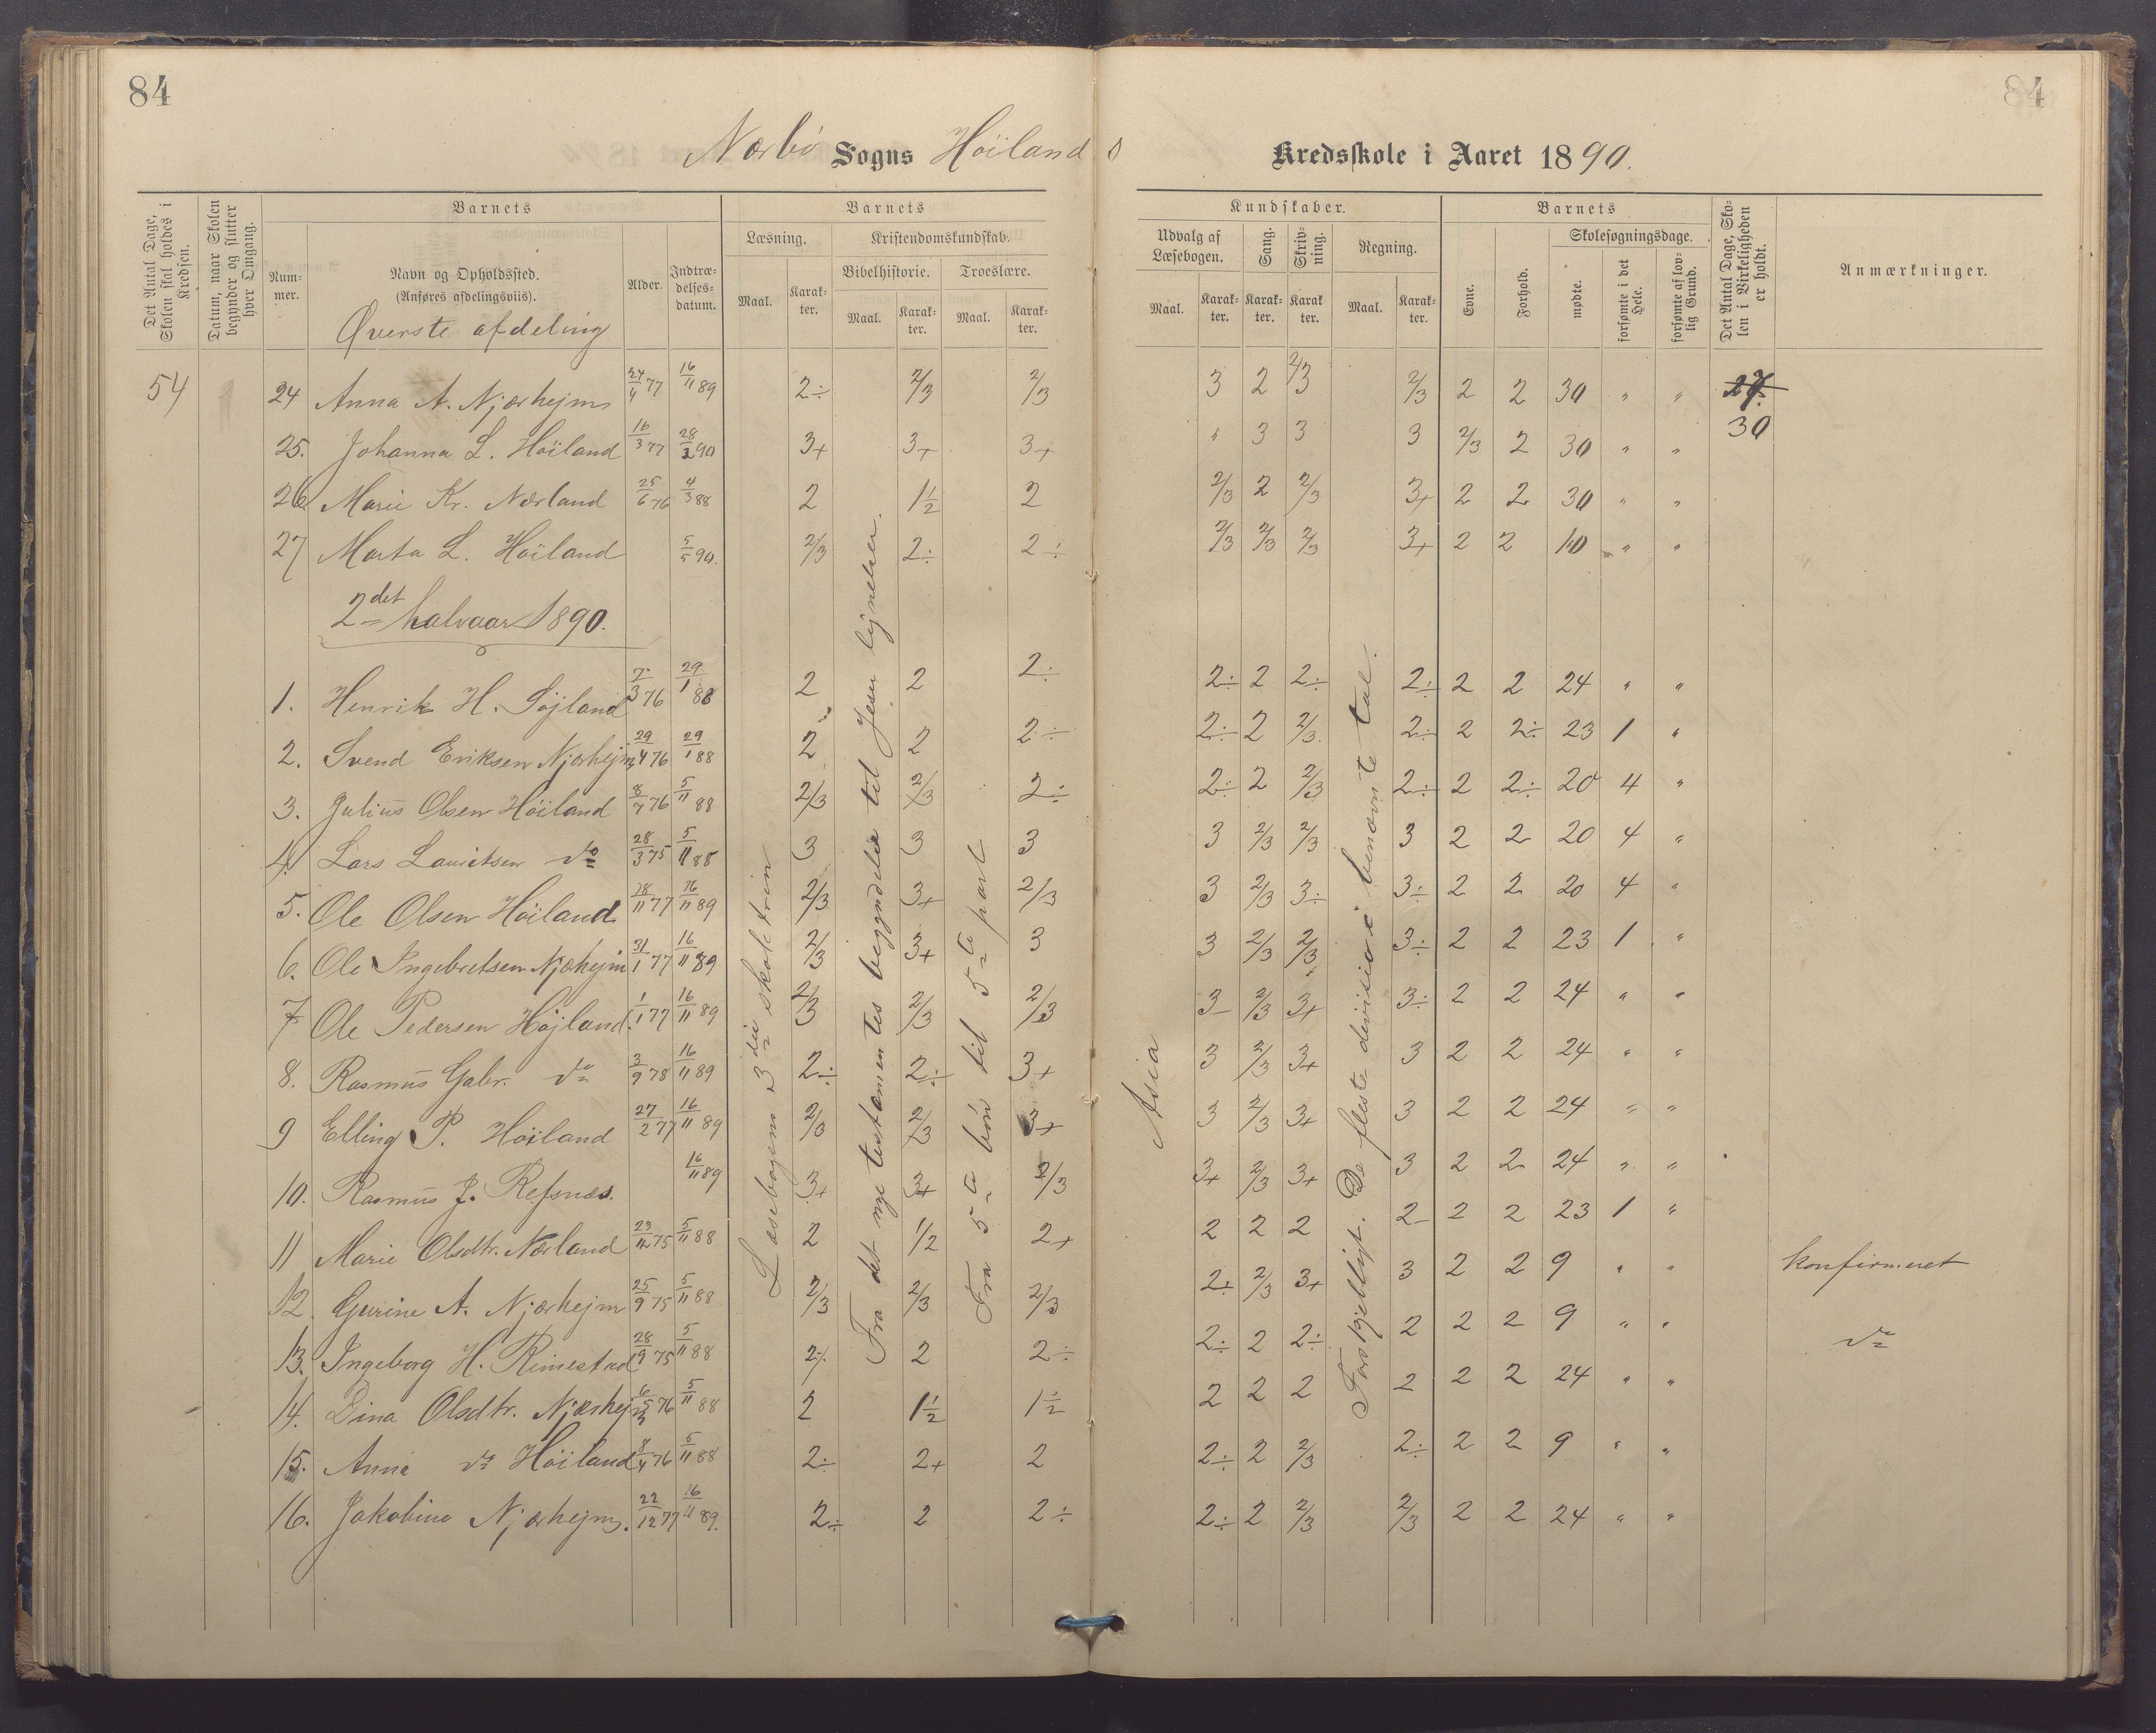 84
84
Nærbö Sogns Höilands Kredsskole i Aaret 1890.
Det Antal Dage, Skolen skal holdes i Kredsen.
Datum, naar Skolen begynder og slutter hver Omgang.
Barnets
Nummer.
Navn og Opholdssted.
(Anføres afdelingsviis).
Alder.
Indtrædelsesdatum.
Barnets
Læsning.
Maal.
Karakter.
Kristendomskundskab.
Bibelhistorie.
Maal.
Karakter.
Troeslære.
Maal.
Karakter.
Kundskaber.
Udvalg af Læsebogen.
Maal.
Karakter.
Sang.
Karakter.
Skrivning.
Karakter.
Regning.
Maal.
Karakter.
Barnets
Evne.
Forhold.
Skolesøgningsdage.
mødte.
forsømte i det Hele.
forsømte af lovlig Grund.
Det Antal Dage, Skolen i Virkeligheden er holdt.
Anmærkninger.
Øverste afdeling
54 24 Anna A. Njærhejm 24/4 77 16/11 89 2÷ 2/3 2/3 3 2 2/3 2/3 2 2 30 " " 27
30
25. Johanna L. Höiland 16/3 77 28/2 90 3+ 3+ 3+ " 3 3 3 2/3 2 30 " "
26 Marie Kr. Nærland 25/6 76 4/3 88 2 1½ 2 2/3 2 2/3 3+ 2 2 30 " "
27 Marta L. Höiland 5/5 90. 2/3 2÷ 2÷ 2/3 2/3 2/3 3+ 2 2 10 " "
2det halvaar 1890.
1. Henrik H. Höjland 7/3 76 29/1 88 2 2 2÷ 2÷ 2 2÷ 2÷ 2 2 24 " "
2. Svend Eriksen Njærhejm 29/4 76 29/1 88 2 2 2÷ 2÷ 2 2/3 2÷ 2 2÷ 23 1 "
3. Julius Olsen Höiland 8/7 76 5/11 88 2/3 2/3 2÷ 2÷ 2 2/3 2÷ 2 2÷ 20 4 "
4. Lars Lauritsen do 28/3 75 5/11 88 3 3 3 3 2/3 2/3 3 2 2 20 4 "
5. Ole Olsen Höiland 28/11 77 16/11 89 2/3 3+ 2/3 3 2/3 3÷ 3÷ 2 2 20 4 "
6. Ole Ingebretsen Njæhejm 31/1 77 16/11 89 2/3 3+ 3 3 2/3 2/3 3÷ 2 2 23 1 "
7 Ole Pedersen Höjland 1/1 77 16/11 89 2/3 2/3 2/3 3 2/3 3+ 3÷ 2 2 24 " "
8. Rasmus Gabr. do 3/9 78 16/11 89 2÷ 2÷ 3+ 3 2/3 3+ 3 2 2 24 " "
9 Elling P. Höiland 27/2 77 16/11 89 2/3 2/3 3+ 3 2/3 3+ 3 2 2 24 " "
10. Rasmus J. Refsnæs. 16/11 89 3+ 3+ 2/3 3+ 2/3 3+ 3 2 2 24 " "
11 Marie Olsdtr. Nærland 23/12 75 5/11 88 2 1/2 2+ 2 2 2 2 2 2 23 1 "
12. Gurine A. Njærhejm 25/9 75 5/11 88 2/3 2/3 2/3 2÷ 2/3 3+ 3 2 2 9 " " konfirmeret
13. Ingeborg H. Rimestad 28/9 75 5/11 88 2÷ 2 2÷ 2÷ 2 2÷ 2 2 2 9 " " do
14. Dina Olsdtr. Njærhejm 76 5/11 88 2 1½ 1½ 2 2 2 2 2 2 24 " "
15. Anna do Höiland 8/4 76 5/11 88 2÷ 2+ 2 2÷ 2 2/3 2÷ 2 2 9 " "
16. Jakobine Njærhejm. 22/12 77 16/11 89. 2÷ 2 2÷ 2÷ 2 2/3 2/3 2 2 24 " "
Læsebogens 3die skoletrin
Fra det nye testamentes begyndelse til Jesu lignelser.
Fra 5te bön til 5te part
Asia
Forskjelligt. De fleste division i benævnte tal.